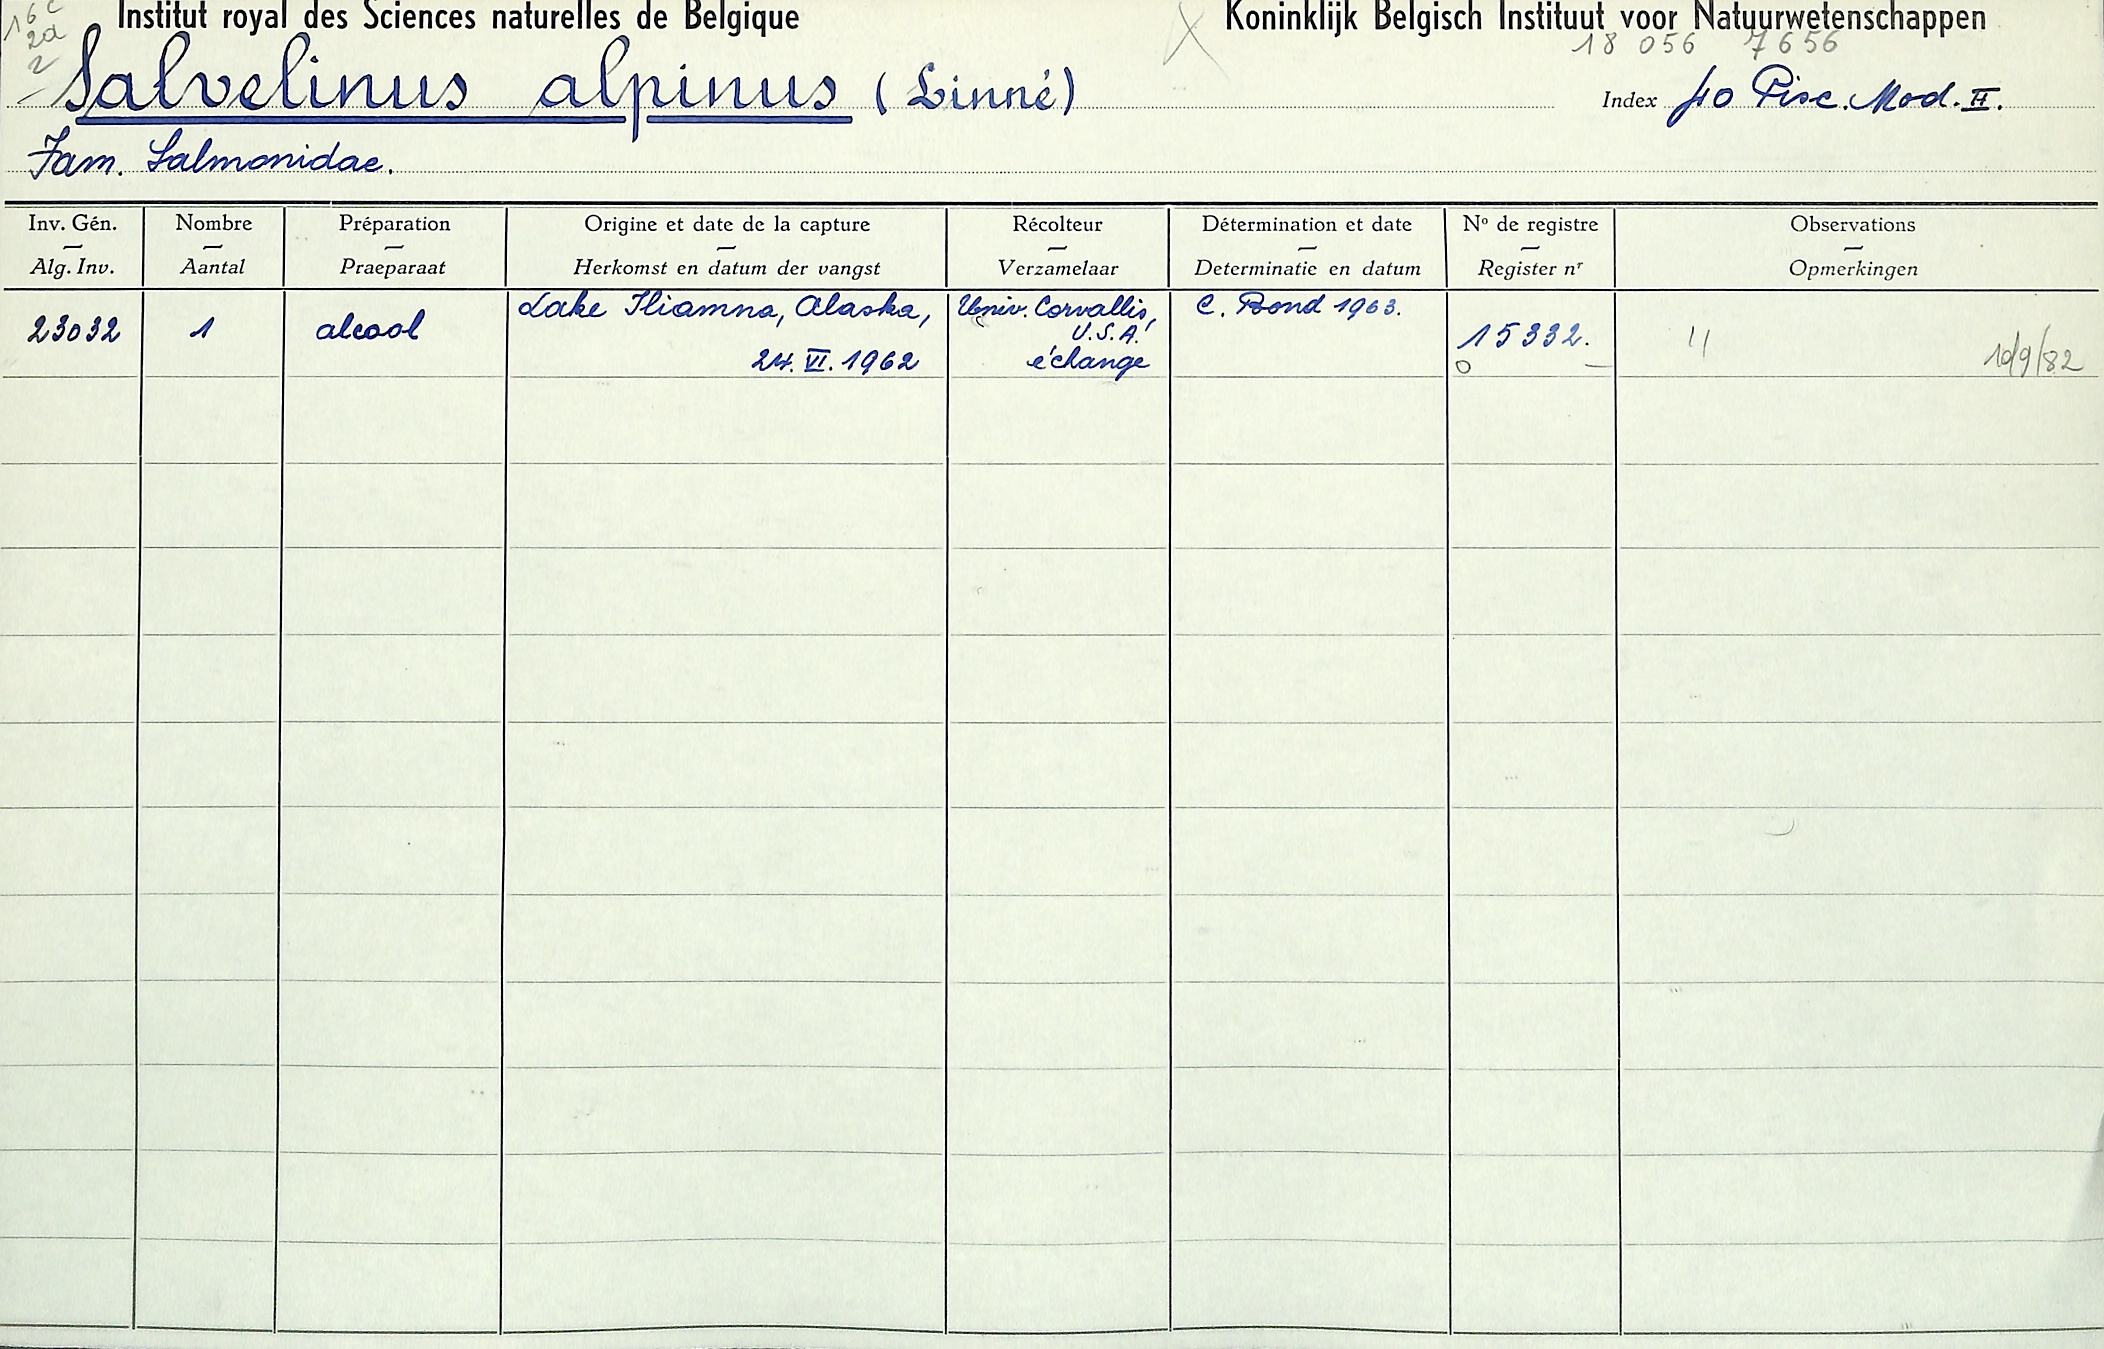 16c
2a
2
Institut royal des Sciences naturelles de Belgique
Koninklijk Belgisch Instituut voor Natuurwetenschappen
18 056 7656
Salvelinus alpinus (Linné)
Index 40 Pisc. Mod. II.
Fam. Salmonidae.
Inv. Gén. Nombre Préparation Origine et date de la capture Récolteur Détermination et date Nº de registre Observations
Alg. Inv. Aantal Praeparaat Herkomst en datum der vangst Verzamelaar Determinatie en datum Register nr Opmerkingen
23032
1
alcool
Lake Iliamna, Alaska,
24. VI. 1962
Univ. Corvallis,
U.S.A.
échange
C. Bond 1963.
15332.
O —
"
10/9/82